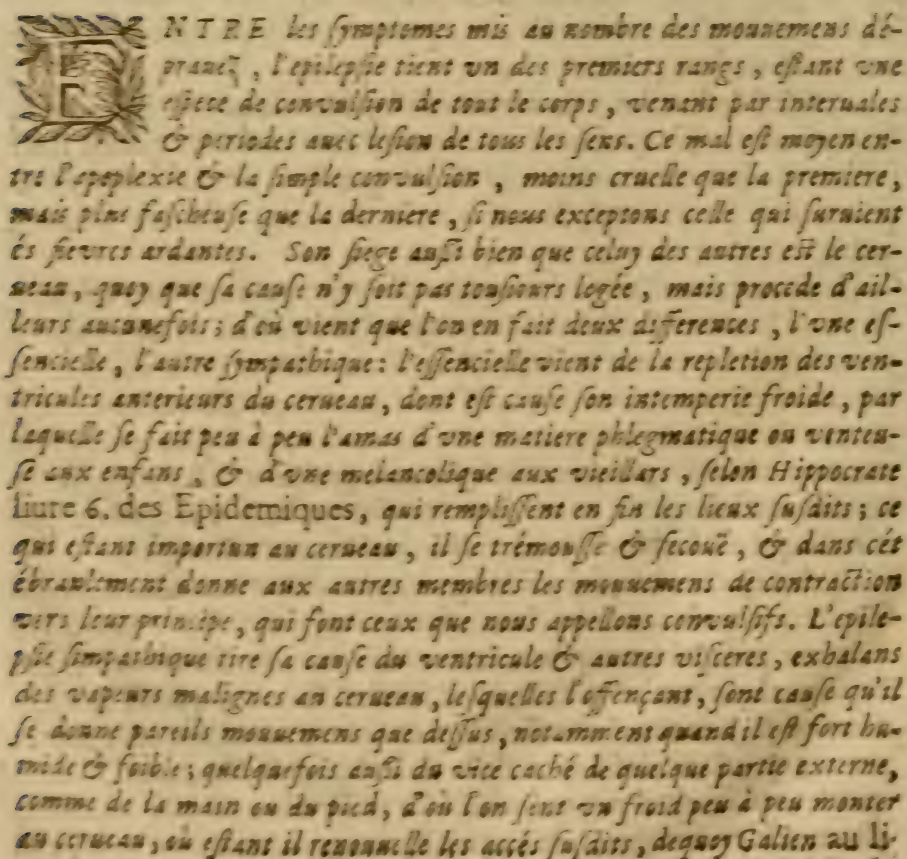 ENTRE les ſymptomes mis au nombre des mouuemens dé-
prauez̃, l'epilepſie tient vn des premiers rangs, eſtant vne
eſpece de conuulſion de tout le corps, venant par interuales
& periodes auec leſion de tous les ſens. Ce mal eſt moyen en-
tre l'apoplexie & la ſimple conuulſion, moins cruelle que la premiere,
mais plus faſcheuſe que la derniere, ſi nous exceptons celle qui ſuruient
és fievres ardantes. Son ſiege auſſi bien que celuy des autres eſt le cer-
ueau, quoy que ſa cauſe n'y ſoit pas touſiours logée, mais procede d'ail-
leurs aucunefois; d'où vient que l'on en fait deux differences, l'vne eſ-
ſencielle, l'autre ſympathique: l'eſſencielle vient de la repletion des ven-
tricules anterieurs du cerueau, dont eſt cauſe ſon intemperie froide, par
laquelle ſe fait peu à peu l'amas d'vne matiere phlegmatique ou venteu-
ſe aux enfans, & d'vne melancolique aux vieillars, ſelon Hippocrate
liure 6. des Epidemiques, qui rempliſſent en fin les lieux ſuſdits; ce
qui eſtant importun au cerueau, il ſe trémouſſe & ſecouë, & dans cét
ébranlement donne aux autres membres les mouuemens de contraction
vers leur principe, qui ſont ceux que nous appellons conuulſifs. L'epile-
pſie ſimpathique tire ſa cauſe du ventricule & autres viſceres, exhalans
des vapeurs malignes au cerueau, leſquelles l'offençant, ſont cauſe qu'il
ſe donne pareils mouuemens que deſſus, notamment quand il eſt fort hu-
mide & foible; quelquefois auſſi du vice caché de quelque partie externe,
comme de la main ou du pied, d'où l'on ſent vn froid peu à peu monter
au cerueau, où eſtant il renouuelle les accés ſuſdits, dequoy Galien au li-